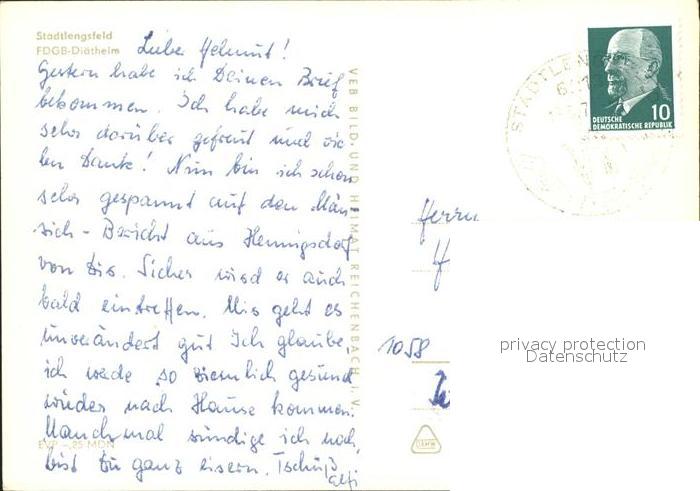 Stadtlengsfeld
FDGB-Diätheim
Lieber Helmut!
Gestern habe ich Deinen Brief
bekommen. Ich habe mich
sehr darüber gefreut und vie-
len Dank! Nun bin ich schon
sehr gespannt auf den
- Bericht aus Hennigsdorf
von Dir. Sicher wird er auch
bald eintreffen. Mir geht es
unverändert gut. Ich glaube,
ich werde so ziemlich gesund
wieder nach Hause kommen.
Manchmal sündige ich noch,
bist Du ganz eisern. Tschüß
EVP -,25 MDN
VEB BILD UND HEIMAT REICHENBACH I. V.
STADTLENGS
DEUTSCHE
DEMOKRATISCHE REPUBLIK
10
Herrn
H
1058
privacy protection
Datenschutz